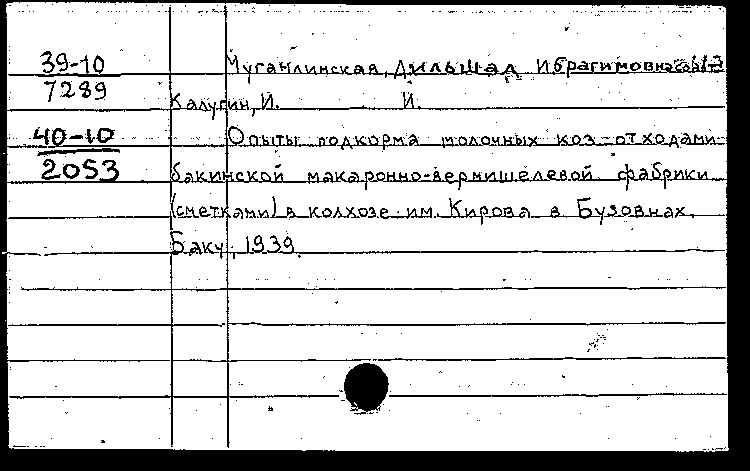 39-10
7289
Муганлинская, Дильшад Ибрагимовна
Калугин, И. И.
40-10
2053
Опыты подкорма молочных коз отходами
бакинской макаронно-вермишелевой фабрики
(сметками) в колхозе им. Кирова в Бузовнах.
Баку, 1939.